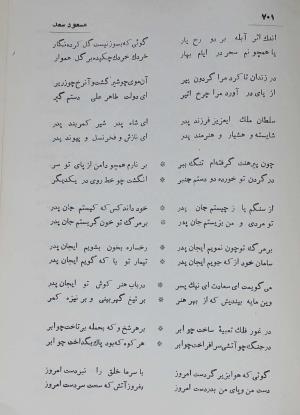 ۷۰۱
مسعود سعد
اندك اثر آبله بر دو رخ یار
گوئی که بسوزنیست گل کرده نگار
یا همچو نم سحر در ایام بهار
خردك خردك چکیده بر گل هموار
در زندان تا کرد مرا گردون پیر
آن موی چو شیر گشت و آن رخ چو زریر
از پای در آورد مرا چرخ اثیر
ای دولت طاهر علی دستم گیر
سلطان ملك ایعزیز فرزند پدر
ای شاد پدر شیر کمربند پدر
شایسته و هشیار و هنرمند پدر
ای نازش و فخر نسل و پیوند پدر
چون پیرهنت گرفته‌ام تنگ ببر
بر نارم همچو دامن از پای تو سر
در گردن تو خورده دو دستم چنبر
انگشت چو خط روی در یکدیگر
از سنگم یا ز چیستم جان پدر
خود داند کس که کیستم جان پدر
تو مردی و من بزیستم جان پدر
بر مرگ تو خون گریستم جان پدر
بر مرگ تو چون نمویم ایجان پدر
رخساره بخون بشویم ایجان پدر
سامان خود از که جویم ایجان پدر
تیمار تو با که گویم ایجان پدر
می‌گویمت ای سعادت ای نیك پسر
در باب هنر کوش تو
وین مایه بیندیش که از بهر هنر
بر تیغ گهر بینی و بر نیزه کمر
در غور فلك تعبیهٔ ساخت چو ابر
بر هر شخ و که بحمله بر تاخت چو ابر
در جنگ چو آتشی سرافراخت چو ابر
هر کوه که بود پاك بگداخت چو ابر
گوئی که هوا بزیر گردست امروز
با سرما خلق را نبردست امروز
دست من و پای من بدردست امروز
بفروز آتش که سخت سردست امروز